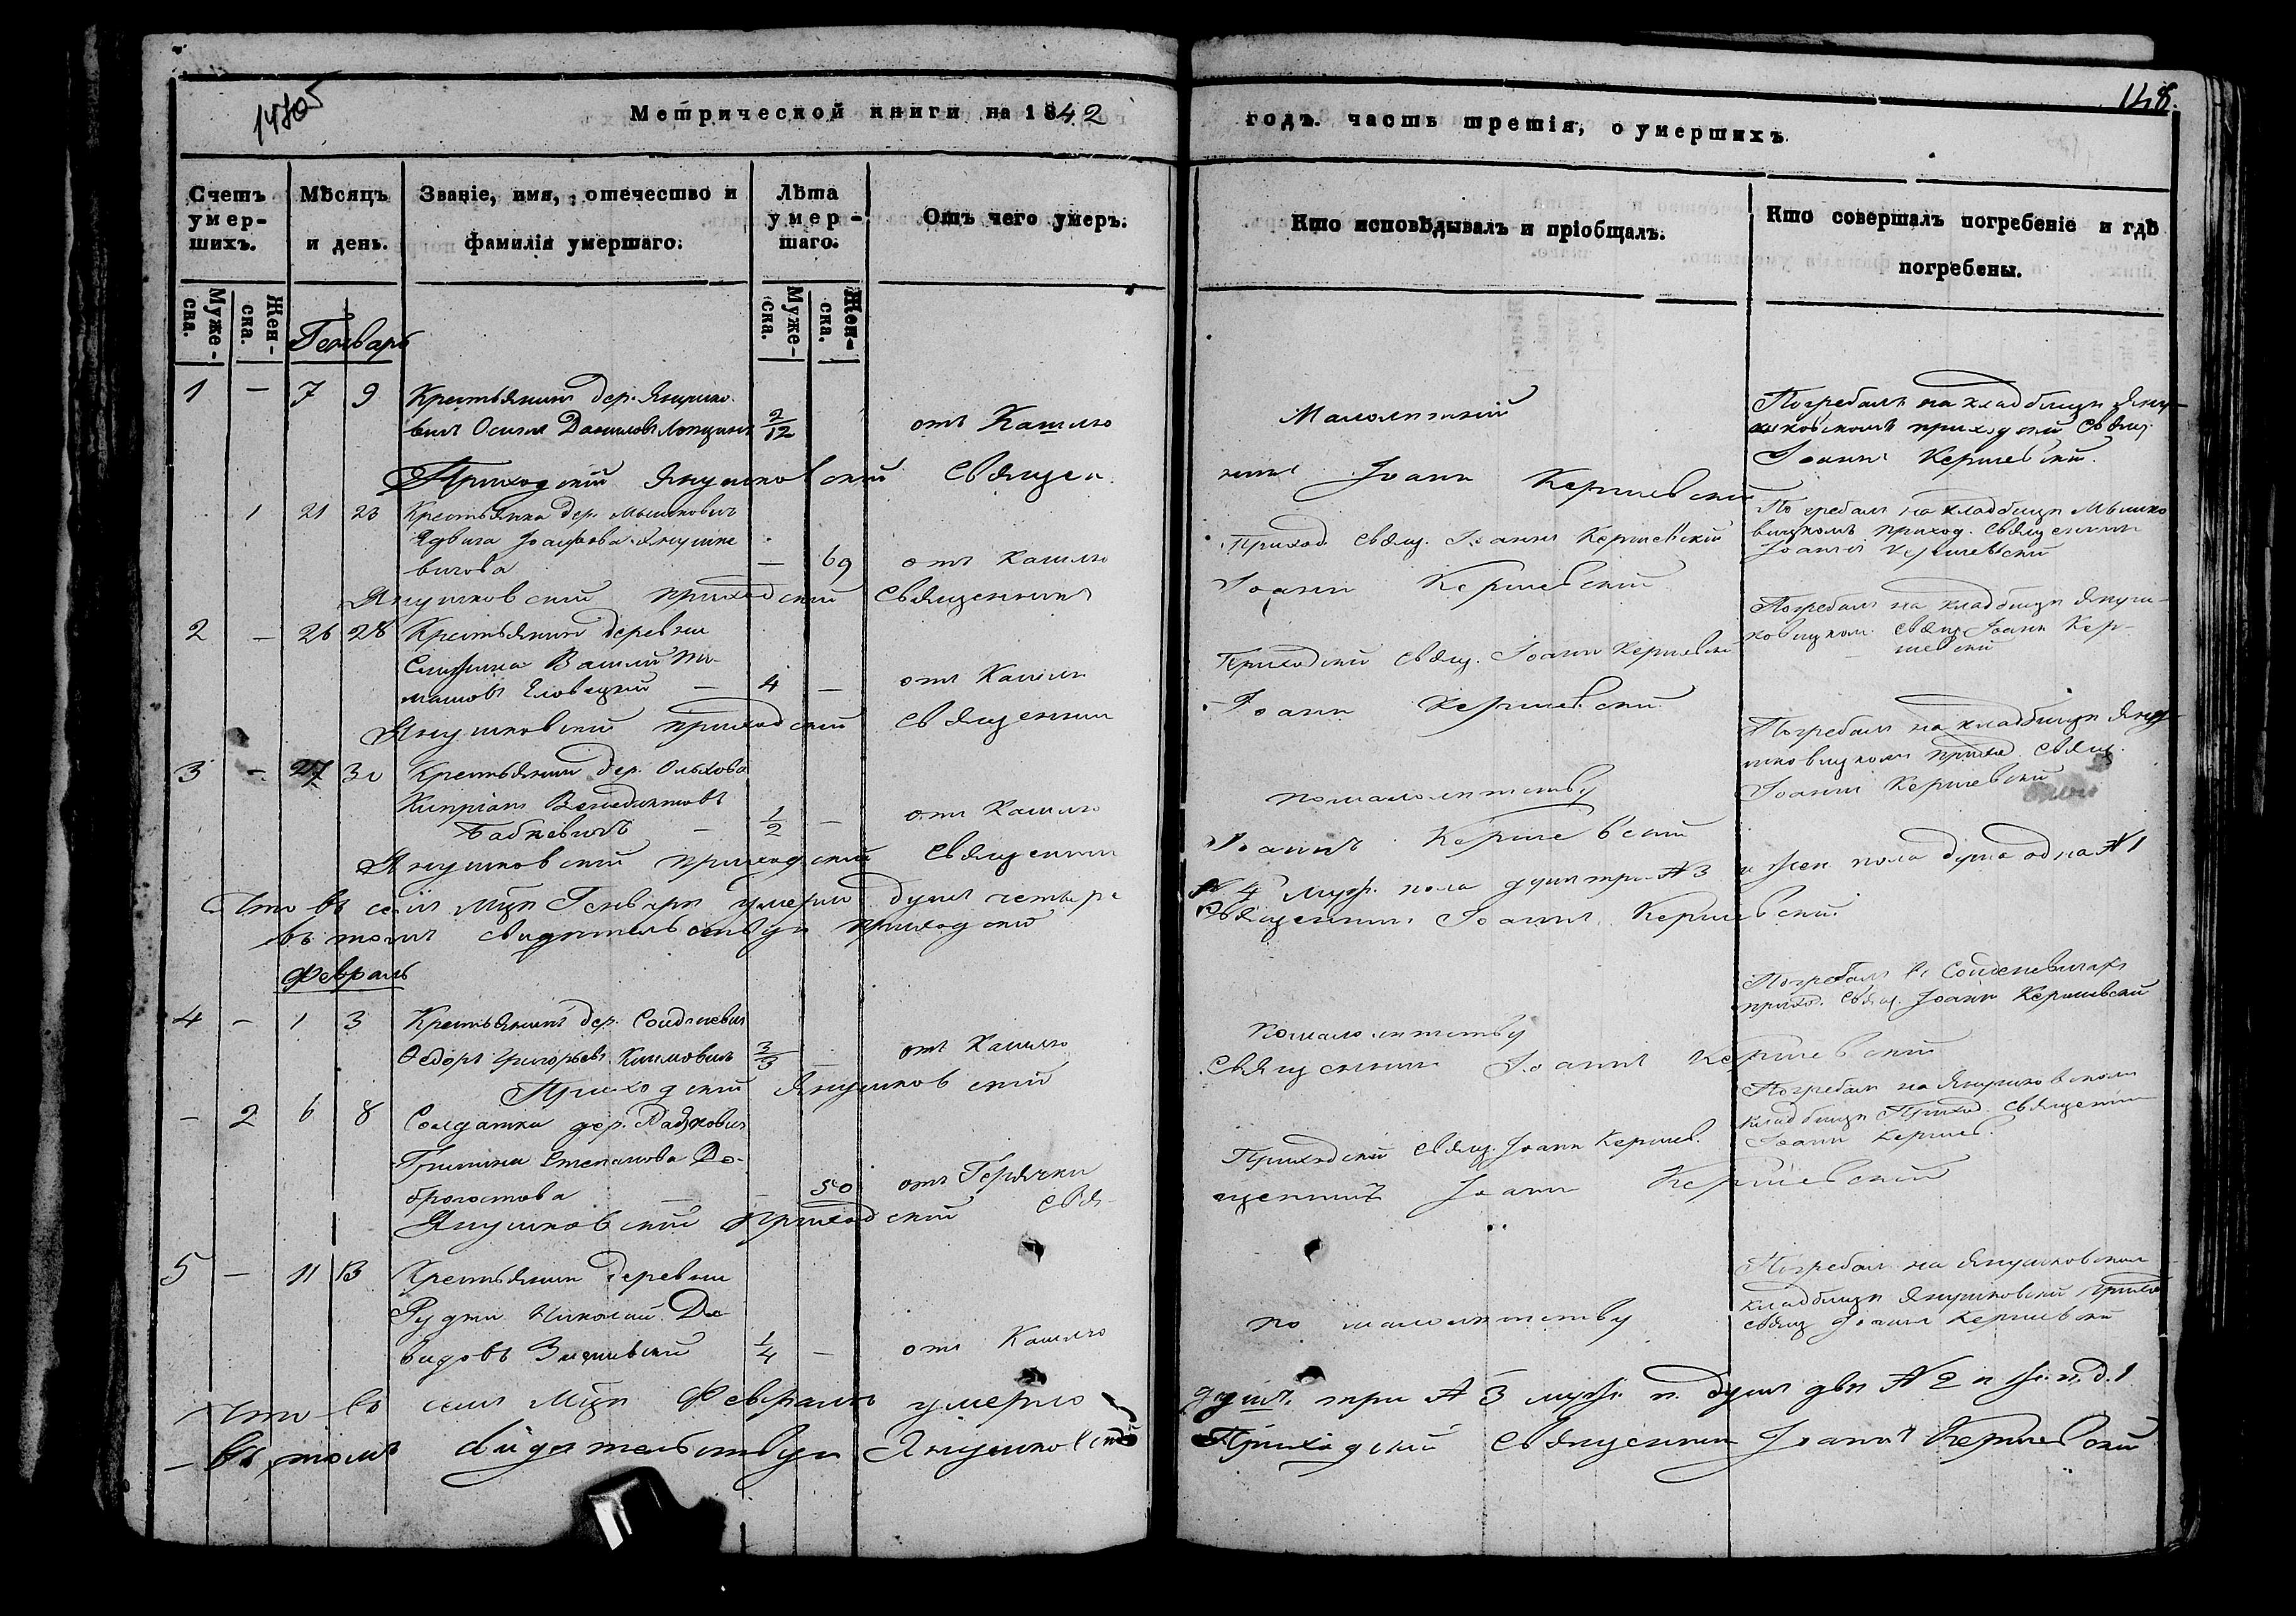 148
Метрической книги на 1842
годъ. часть третія, о умершихъ.
Счетъ умер-
шихъ.
Мѣсяцъ
и день.
Званіе, имя, отечество и
фамилія умершаго.
Лѣта
умер-
шаго.
Отъ чего умеръ.
Кто исповѣдывалъ и пріобщалъ.
Кто совершалъ погребеніе и гдѣ
погребены.
Муже-
ска.
Жен-
ска.
Муже-
ска.
Жен-
ска.
Генварь
1 — 7 9 Крестьянинъ дер. Янушко-
вичъ Осипъ Даниловъ 2/12 отъ Кашлю
Малолѣтній
Погребалъ на кладбищѣ Яну-
шковскомъ приходскій Свящ.
Іоаннъ Кершевскій
Приходскій Янушковскій Священ-
никъ Іоаннъ Кершевскій
1 21 23 Крестьянка дер. Мышковичъ
Ядвига Янушке-
вичова — 69 отъ Кашлю
Приход. Свящ. Іоаннъ Кершевскій
Погребалъ на кладбищѣ Мышко-
вицкомъ приход. Священникъ
Іоаннъ Кершевскій
Янушковскій приходскій Священникъ
Іоаннъ Кершевскій
2 — 26 28 Крестьянинъ деревни
Василій
— 4 — отъ Кашлю
Приходскій Свящ. Іоаннъ Кершевскій
Погребалъ на кладбищѣ Януш-
ковицкомъ Свящ. Іоаннъ Кер-
шевскій
Янушковскій приходскій Священникъ
Іоаннъ Кершевскій
3 — 27 30 Крестьянинъ дер. Ольхова
Кипріанъ Венедиктовъ
Бабкевичъ — 1/2 — отъ Кашлю
по малолѣтству
Погребалъ на кладбищѣ Яну-
шковицкомъ приход. Свящ.
Іоаннъ Кершевскій
Янушковскій приходскій Священникъ
Іоаннъ Кершевскій
Что въ семъ мцѣ Генварѣ умерло душъ четыре
№ 4 муж. пола душъ три № 3 и жен. пола душа одна № 1
въ томъ свидѣтельствую приходскій
Священникъ Іоаннъ Кершевскій
Февраль
4 — 1 3 Крестьянинъ дер.
Ѳедоръ Григорьевъ Климовичъ 3/3 — отъ Кашлю
По малолѣтству
Погребалъ въ
приход. Свящ. Іоаннъ Кершевскій
Приходскій Янушковскій
Священникъ Іоаннъ Кершевскій
— 2 6 8 Солдатка дер.
Степанова До-
брогостова — 50 отъ Горячки
Приходскій Свящ. Іоаннъ Кершев.
Погребалъ на Янушковскомъ
кладбищѣ Приход. Священникъ
Іоаннъ Кершев.
Янушковскій Приходскій Свя-
щенникъ Іоаннъ Кершевскій
5 — 11 13 Крестьянинъ деревни
Рудки Николай Да-
видовъ 1/4 — отъ Кашлю
по малолѣтству
Погребалъ на Янушковскомъ
кладбищѣ Янушковскій Приход.
Свящ. Іоаннъ Кершевскій
Что въ семъ мцѣ Февралѣ умерло
душъ три № 3 муж. п. душъ двѣ № 2 и ж. п. д. 1
въ томъ свидѣтельствую Янушковскій
Приходскій Священникъ Іоаннъ Кершевскій